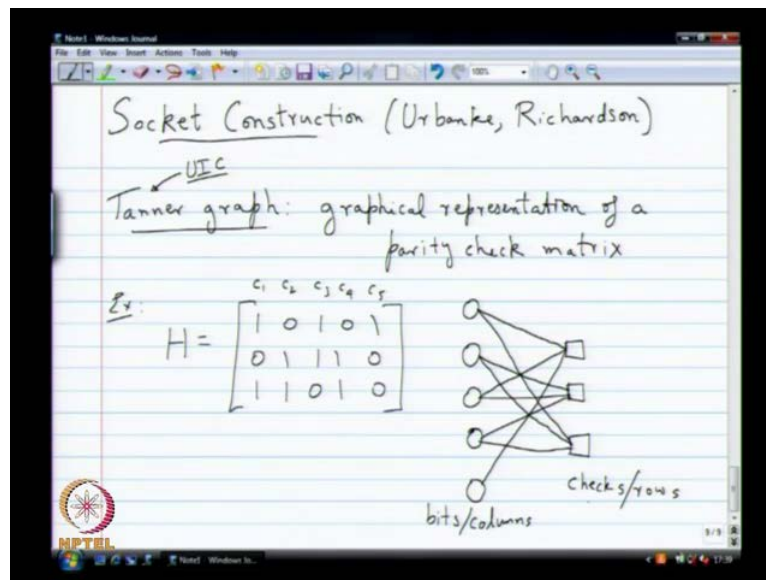 Note1 - Windows Journal
File Edit View Insert Actions Tools Help
100%
Socket Construction (Urbanke, Richardson)
UIC
Tanner graph: graphical representation of a
parity check matrix
Ex:
c1 c2 c3 c4 c5
H =
1 0 1 0 1
0 1 1 1 0
1 1 0 1 0
checks/rows
bits/columns
9/9
NPTEL
Note1 - Windows Jo...
17:39